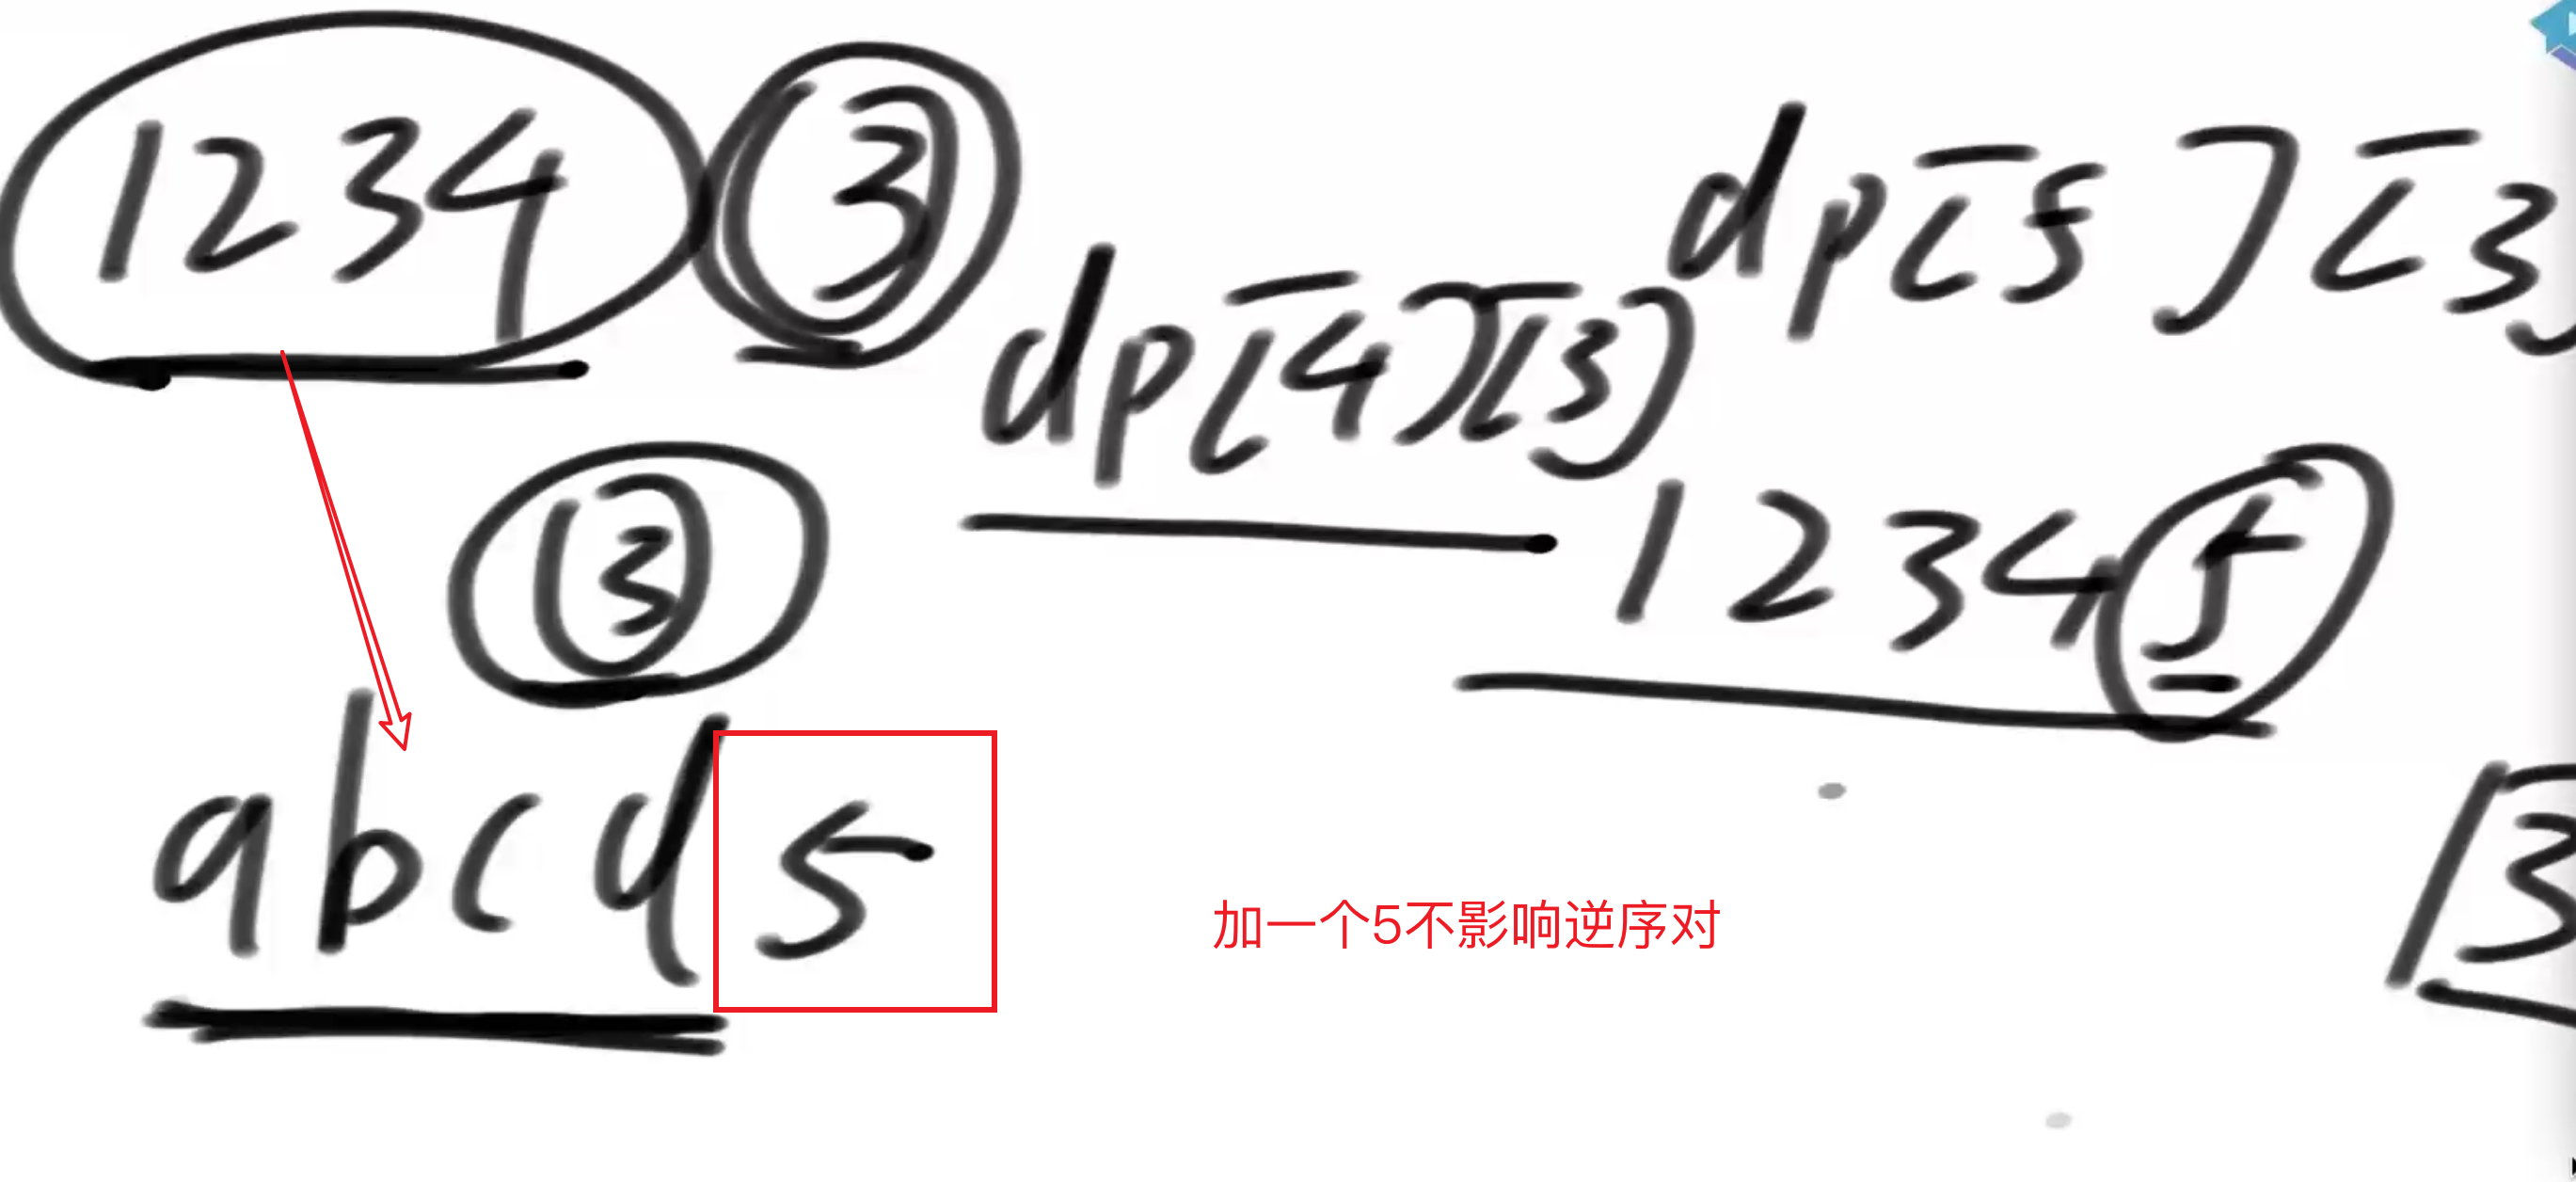 1234 (3)
dp[5][3]
dp[4][3]
(3)
12345
abcd5
加一个5不影响逆序对
[3